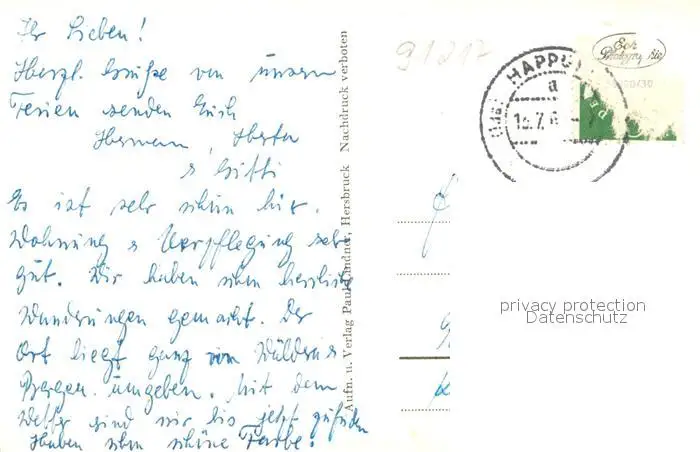 Ihr Lieben!
Herzl. Grüße von unsern
Ferien senden Euch
Hermann, Herta
& Gitti
Es ist sehr schön hier.
Wohnung & Verpflegung sehr
gut. Wir haben schon herrliche
Wanderungen gemacht. Der
Ort liegt ganz von Wäldern &
Bergen umgeben. Mit dem
Wetter sind wir bis jetzt zufrieden
Haben schon schöne Farbe.
Aufn. u. Verlag Paul Lindner, Hersbruck Nachdruck verboten
91217
HAPPU
a
privacy protection
Datenschutz